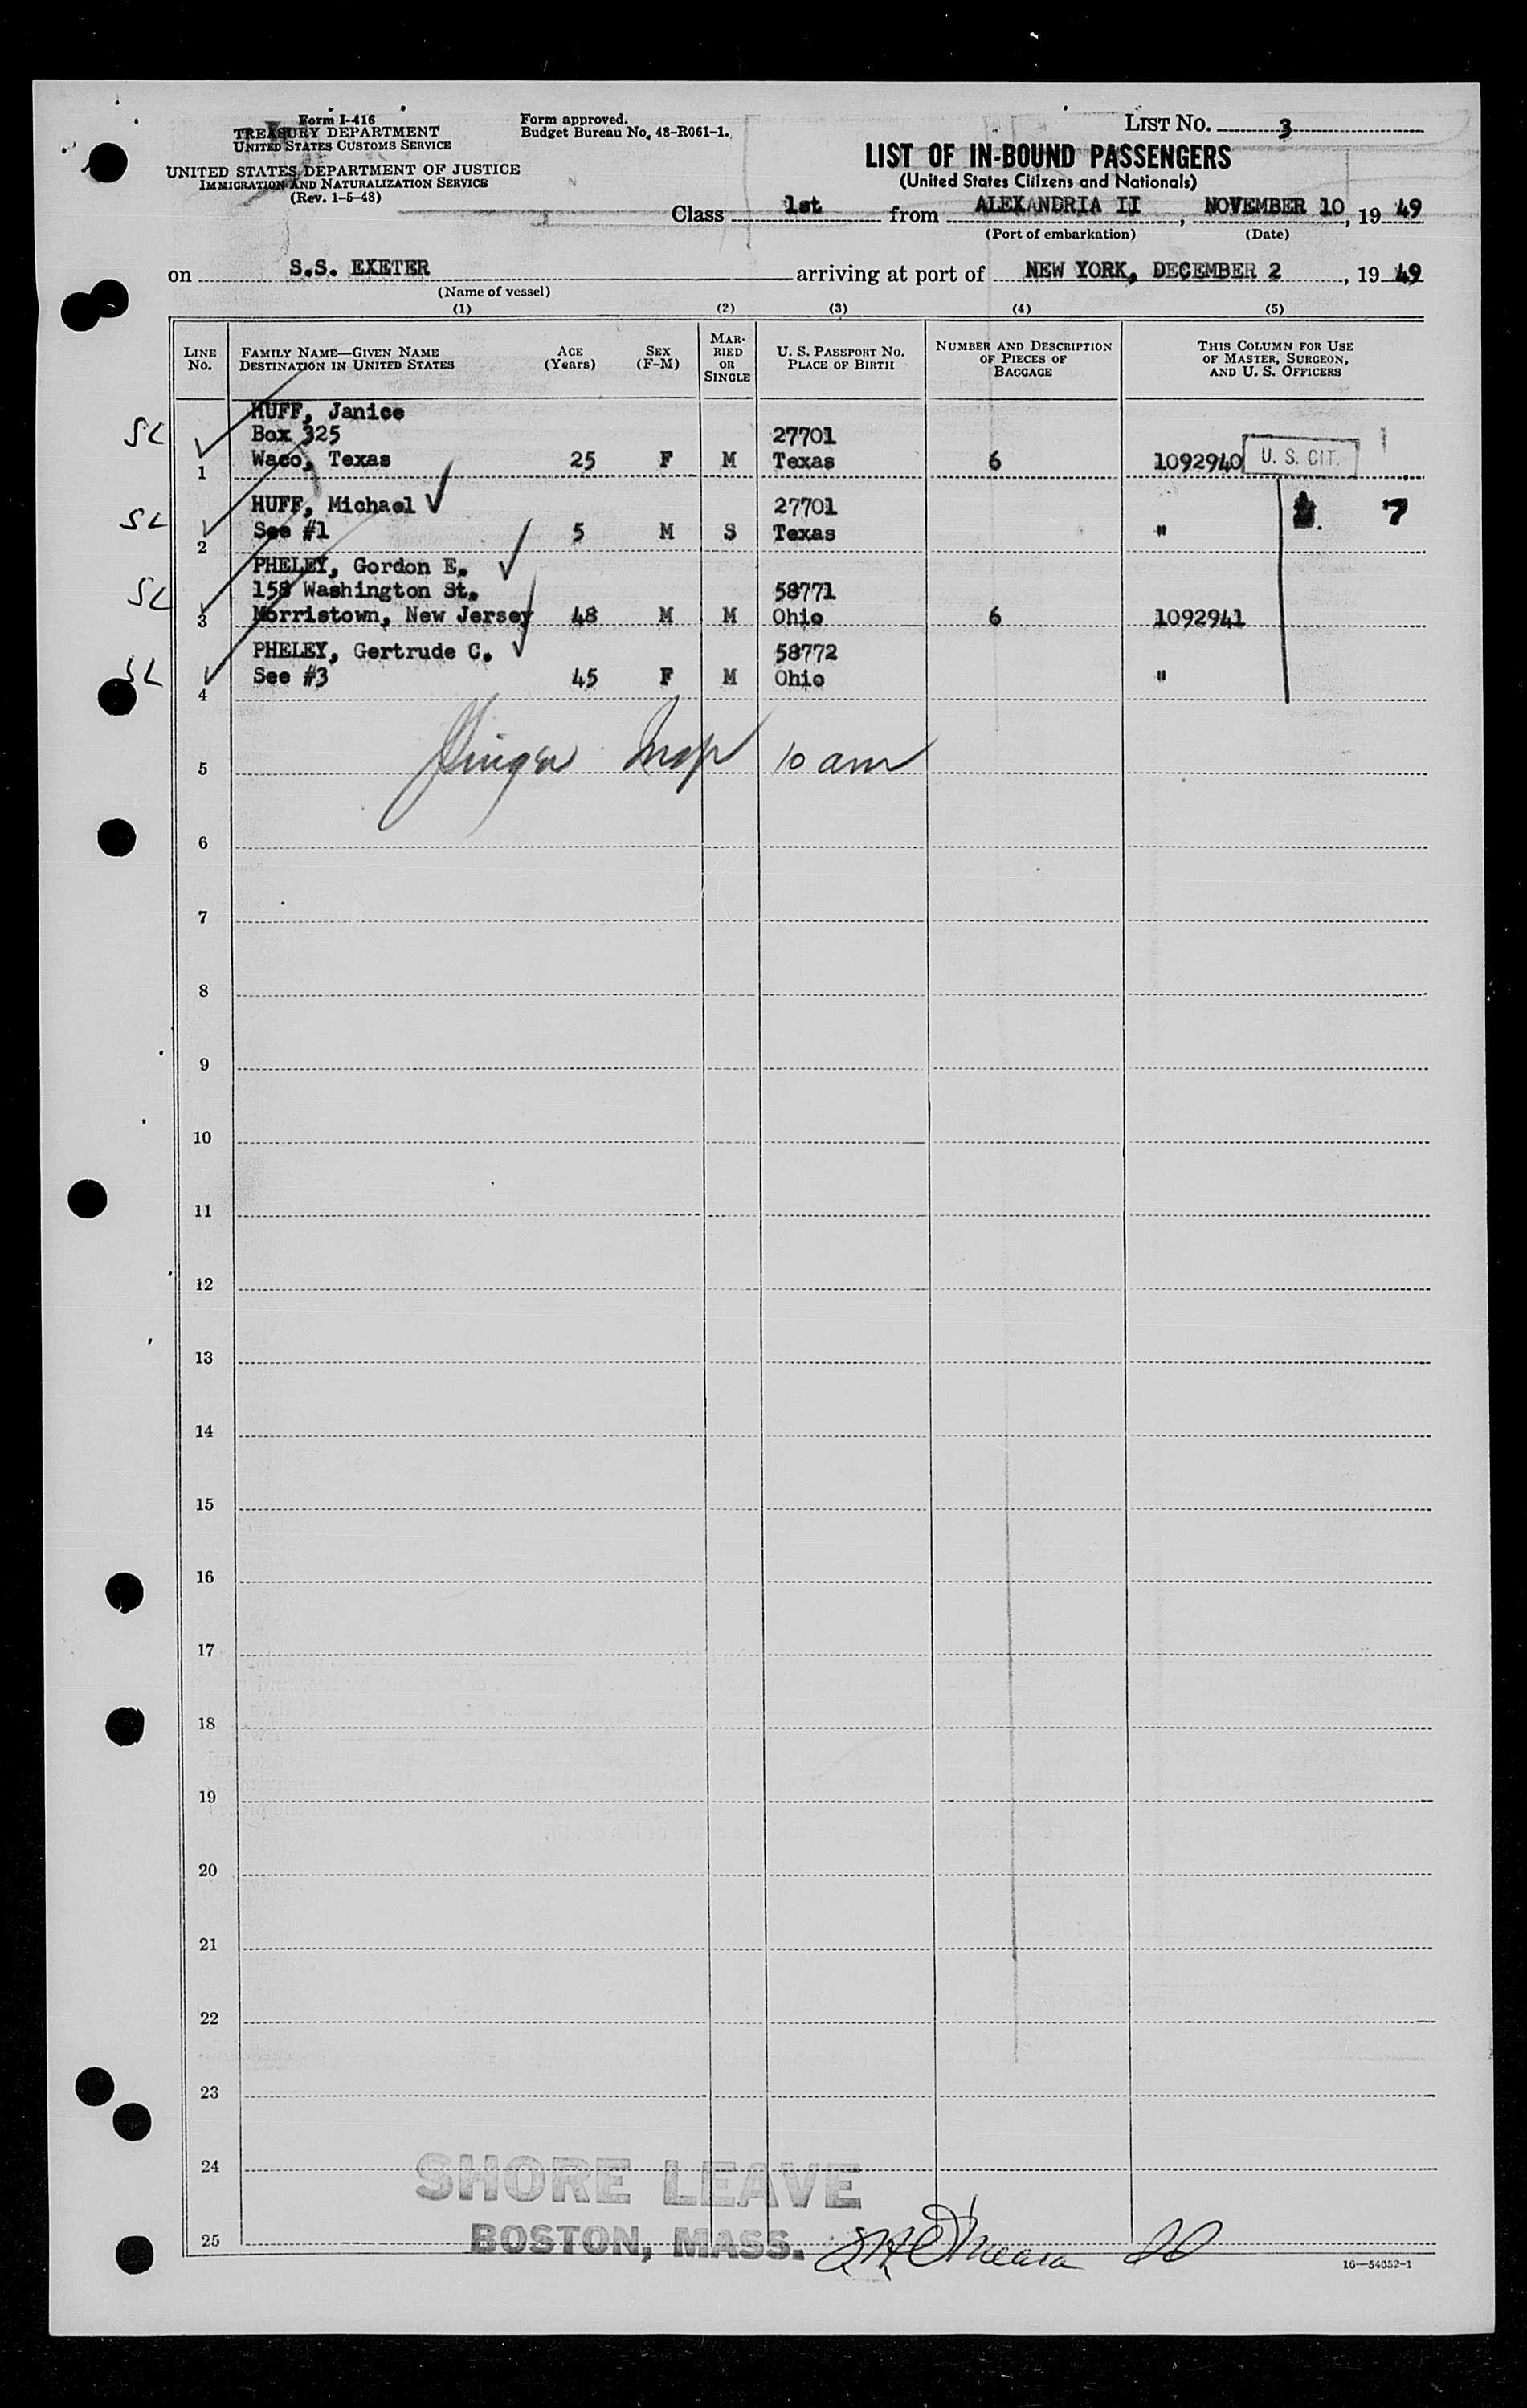 Form I-416
TREASURY DEPARTMENT
UNITED STATES CUSTOMS SERVICE
UNITED STATES DEPARTMENT OF JUSTICE
IMMIGRATION AND NATURALIZATION SERVICE
(Rev. 1-5-48)
Form approved.
Budget Bureau No. 43-R061-1.
LIST NO. 3
LIST OF IN-BOUND PASSENGERS
(United States Citizens and Nationals)
Class 1st from ALEXANDRIA II, NOVEMBER 10, 19 49
(Port of embarkation) (Date)
on S.S. EXETER arriving at port of NEW YORK, DECEMBER 2, 19 49
(Name of vessel)
(1) (2) (3) (4) (5)
LINE NO.
FAMILY NAME—GIVEN NAME
DESTINATION IN UNITED STATES
AGE (Years)
SEX (F-M)
MARRIED OR SINGLE
U. S. PASSPORT NO.
PLACE OF BIRTH
NUMBER AND DESCRIPTION OF PIECES OF BAGGAGE
THIS COLUMN FOR USE OF MASTER, SURGEON, AND U. S. OFFICERS
HUFF, Janice
SL Box 325 27701
1 Waco, Texas 25 F M Texas 6 1092940 U. S. CIT.
HUFF, Michael 27701 7
SL 2 See #1 5 M S Texas "
PHELEY, Gordon E.
SL 158 Washington St. 58771
3 Morristown, New Jersey 48 M M Ohio 6 1092941
PHELEY, Gertrude C. 58772
SL 4 See #3 45 F M Ohio "
5 10 am
6
7
8
9
10
11
12
13
14
15
16
17
18
19
20
21
22
23
24
SHORE LEAVE
25
BOSTON, MASS.
16—54652-1